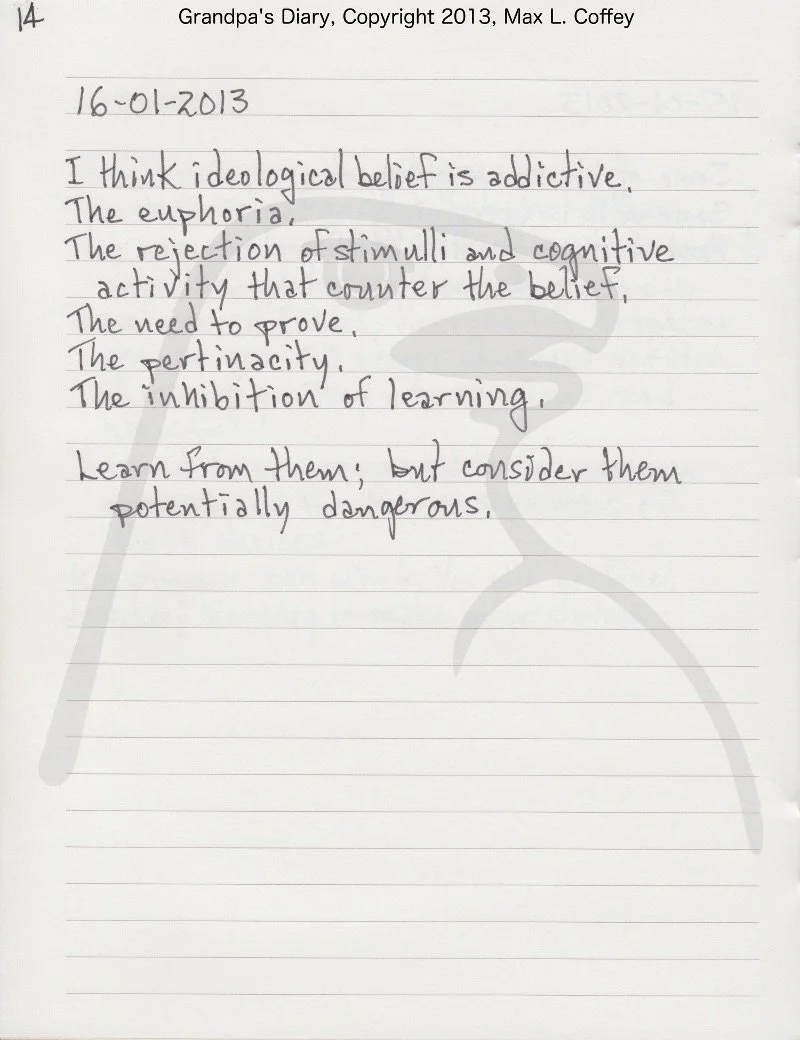 14
Grandpa's Diary, Copyright 2013, Max L. Coffey
16-01-2013
I think ideological belief is addictive.
The euphoria.
The rejection of stimulli and cognitive
activity that counter the belief.
The need to prove.
The pertinacity.
The inhibition of learning.
Learn from them; but consider them
potentially dangerous.